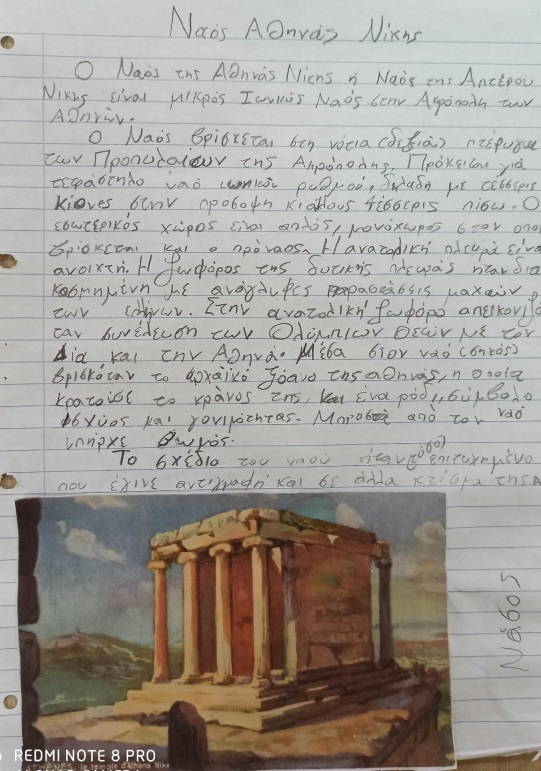 Ναός Αθηνάς Νίκης
Ο Ναός της Αθηνάς Νίκης ή Ναός της Απτέρου
Νίκης είναι μικρός Ιωνικός Ναός στην Ακρόπολη των
Αθηνών.
Ο Ναός βρίσκεται στη νότια (δεξιά) πτέρυγα
των Προπυλαίων της Ακρόπολης. Πρόκειται για
τετράστηλο ναό ιωνικού ρυθμού, δηλαδή με τέσσερις
κίονες στην πρόσοψη κι άλλους τέσσερις πίσω. Ο
εσωτερικός χώρος είναι απλός, μονόχωρος στον οπο
βρίσκεται και ο πρόναος. Η ανατολική πλευρά είνα
ανοιχτή. Η ζωφόρος της δυτικής πλευράς ήταν δια
κοσμημένη με ανάγλυφες παραστάσεις μαχών
των ελλήνων. Στην ανατολική ζωφόρο απεικονιζό
ταν συνέλευση των Ολύμπιων Θεών με τον
Δία και την Αθηνά. Μέσα στον ναό (σηκός)
βρισκόταν το αρχαϊκό ξόανο της αθηνάς, η οποία
κρατούσε το κράνος της, και ένα ρόδι, σύμβολο
ισχύος και γονιμότητας. Μπροστά από τον ναό
υπήρχε βωμός.
Το σχέδιο του ναού ήταν τόσο επιτυχημένο
που έγινε αντιγραφή και σε άλλα κτίσμα της Α
Νάσος
REDMI NOTE 8 PRO
le temple d'Athena Nike